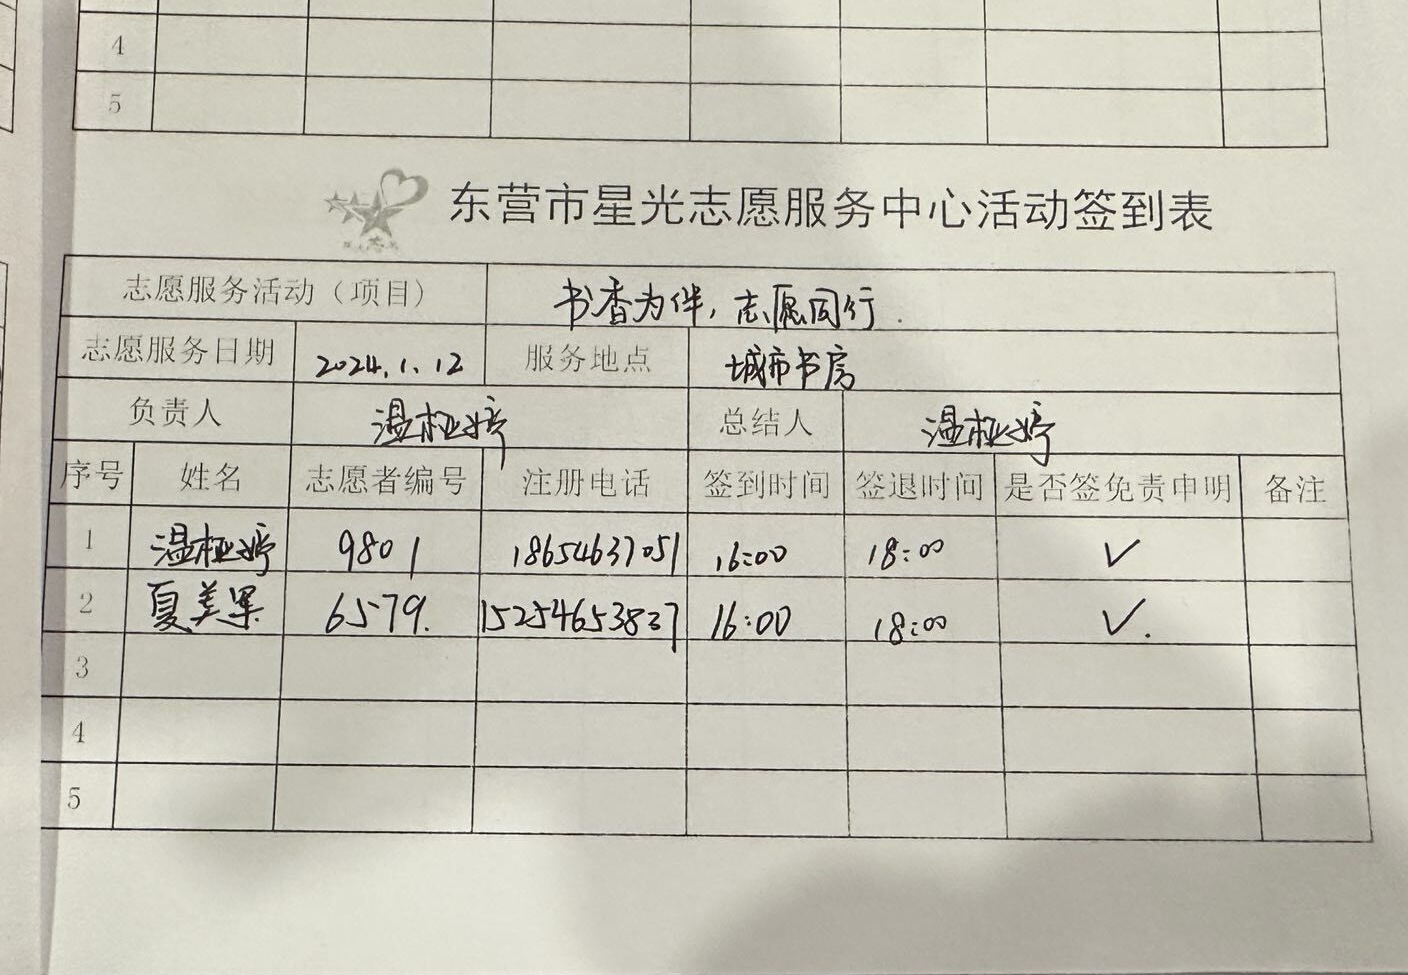 4
5
东营市星光志愿服务中心活动签到表
志愿服务活动（项目） 书香为伴，志愿同行.
志愿服务日期 2024.1.12 服务地点 城市书房
负责人 温桠婷 总结人 温桠婷
序号 姓名 志愿者编号 注册电话 签到时间 签退时间 是否签免责申明 备注
1 温桠婷 9801 18654637051 16:00 18:00 ✓
2 夏美果 6579. 15254653837 16:00 18:00 ✓.
3
4
5